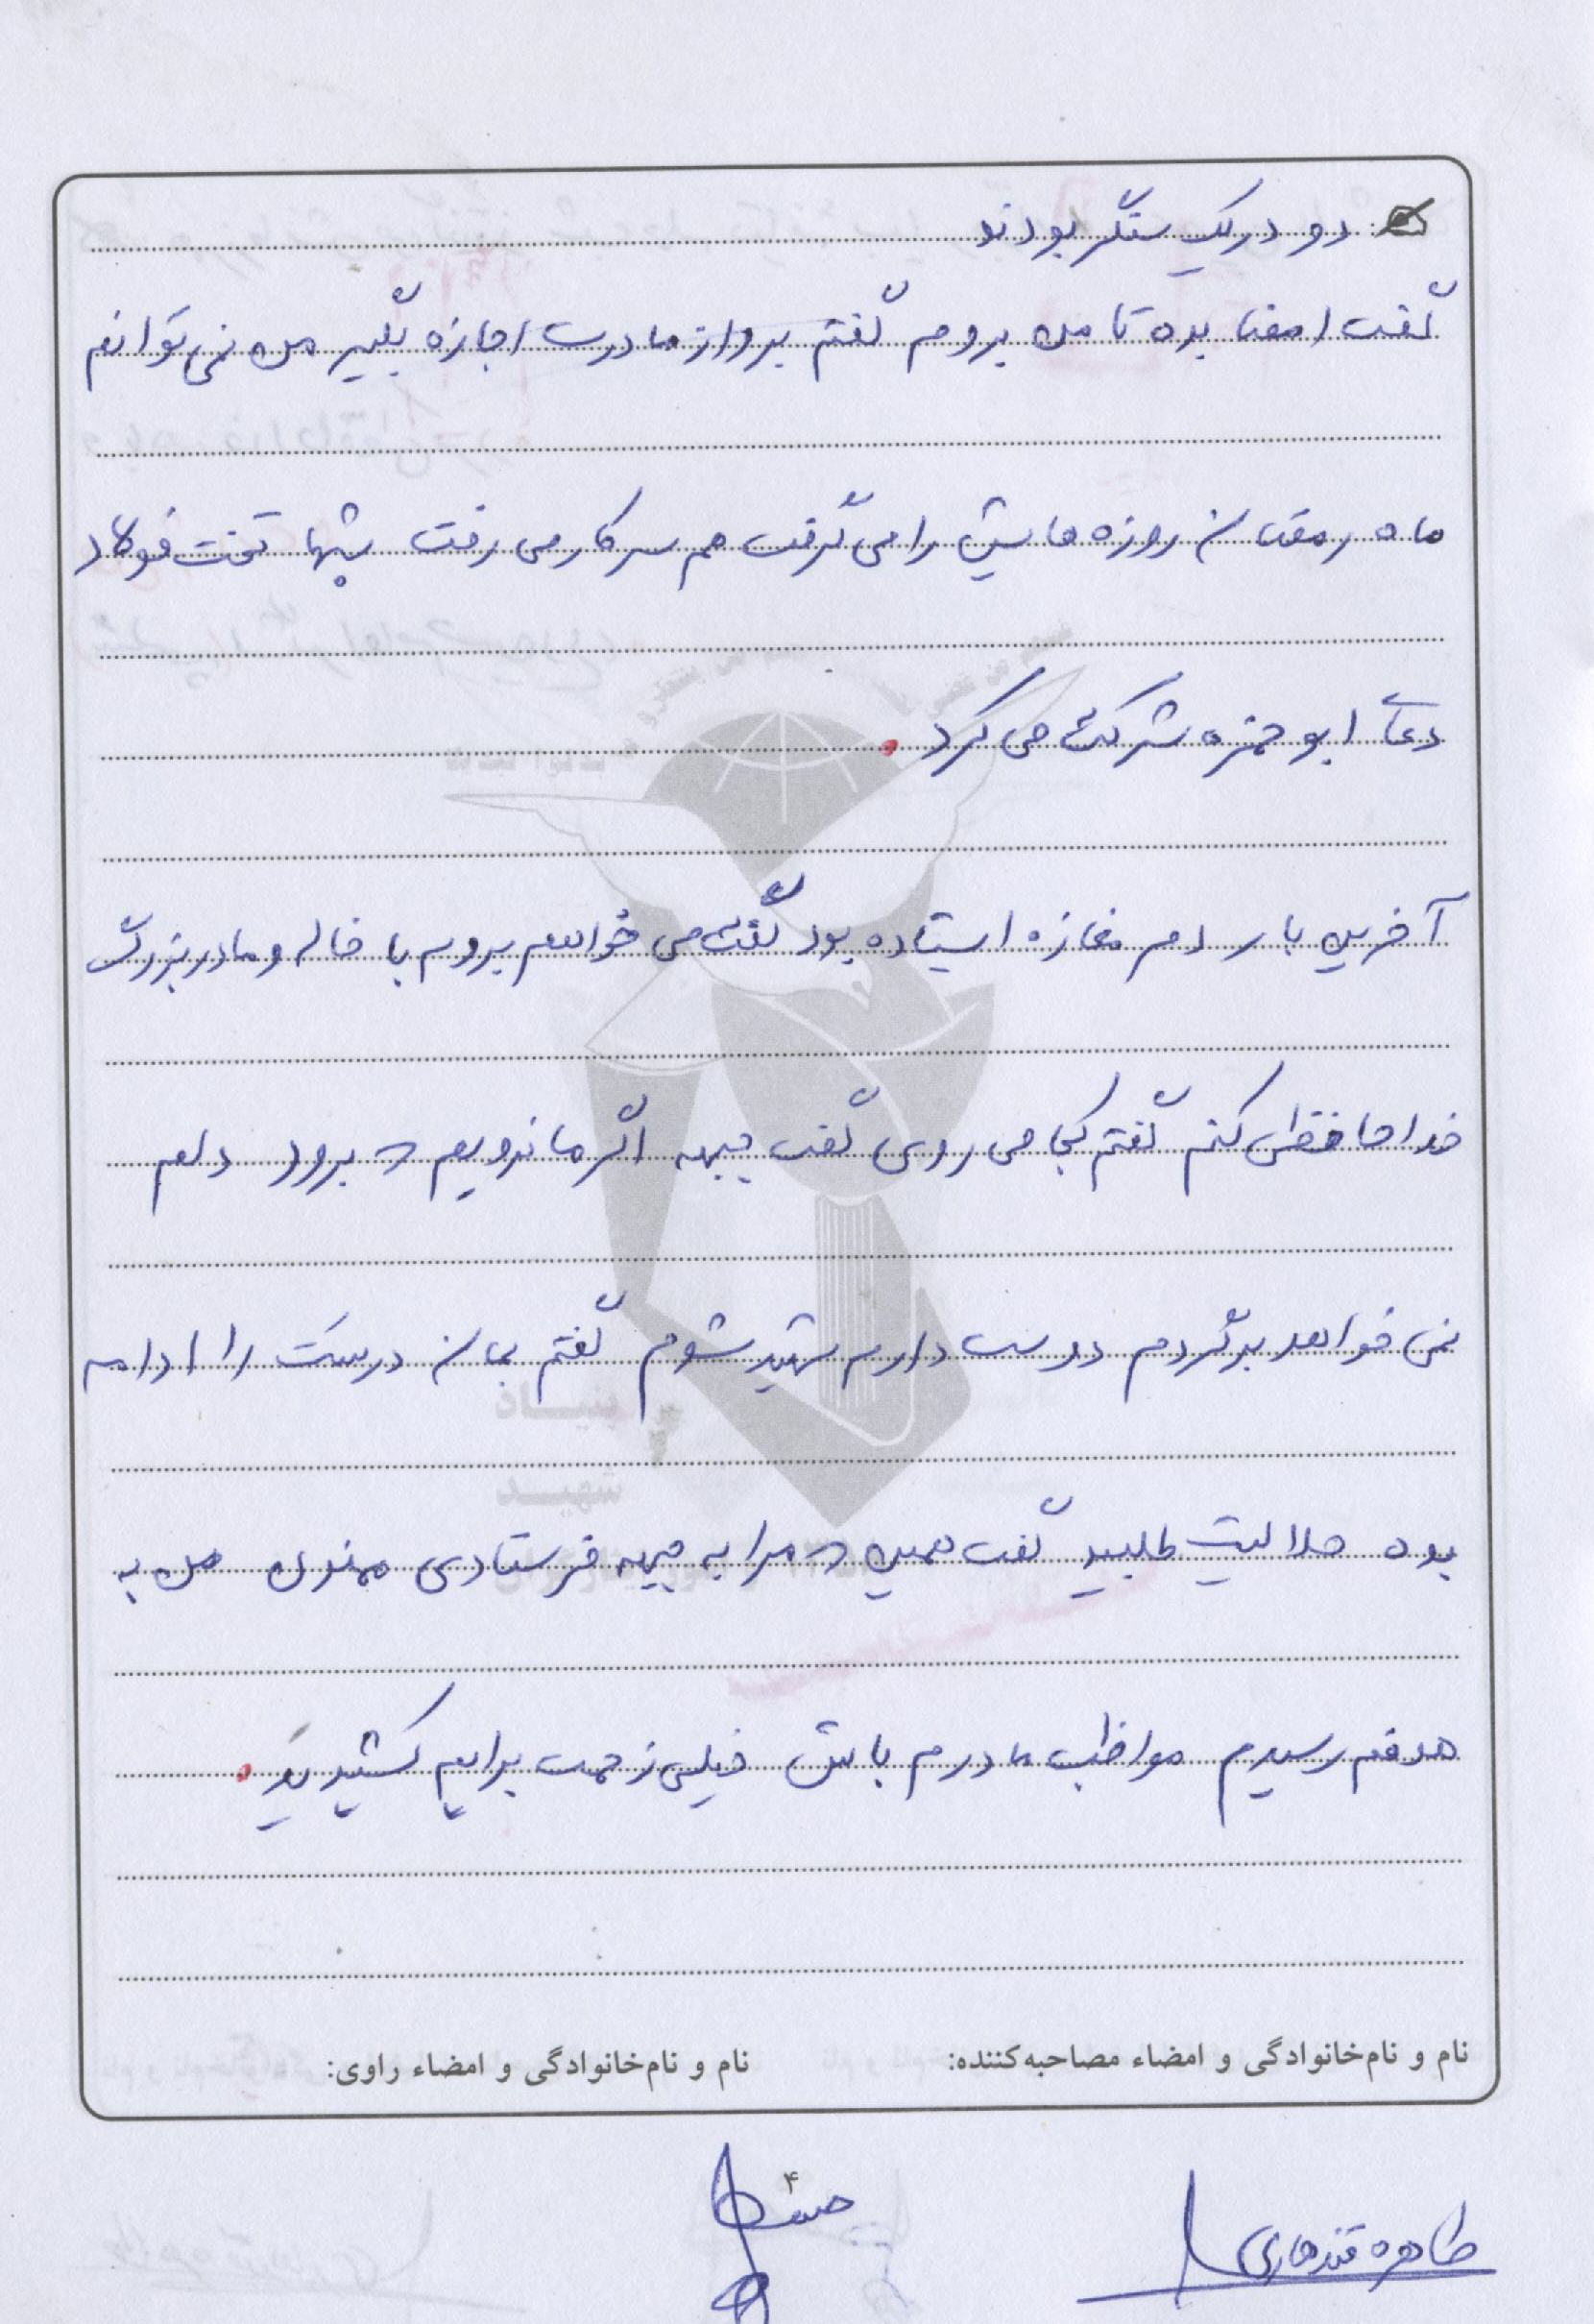 دو در یک سنگر بودند
گفت امضا بده تا من بروم گفتم برو از مادرت اجازه بگیر من نمی توانم
ماه رمضان روزه هایش را می گرفت هم سر کار می رفت شبها تخت فولاد
دعای ابوحمزه شرکت می کرد.
آخرین بار دم مغازه ایستاده بود گفت می خواهم بروم با خاله و مادربزرگ
خداحافظی کنم گفتم کجا می روی گفت جبهه اگر ما نرویم کی برود دلم
نمی خواهد برگردم دوست دارم شهید شوم گفتم بمان درست را ادامه
بده حلالیت طلبید گفت همین که مرا به جبهه فرستادی ممنون من به
هدفم رسیدم مواظب مادرم باش خیلی زحمت برایم کشیدید.
بنیاد
شهید
نام و نام‌خانوادگی و امضاء مصاحبه‌کننده: نام و نام‌خانوادگی و امضاء راوی:
۴
طاهره قندهاری